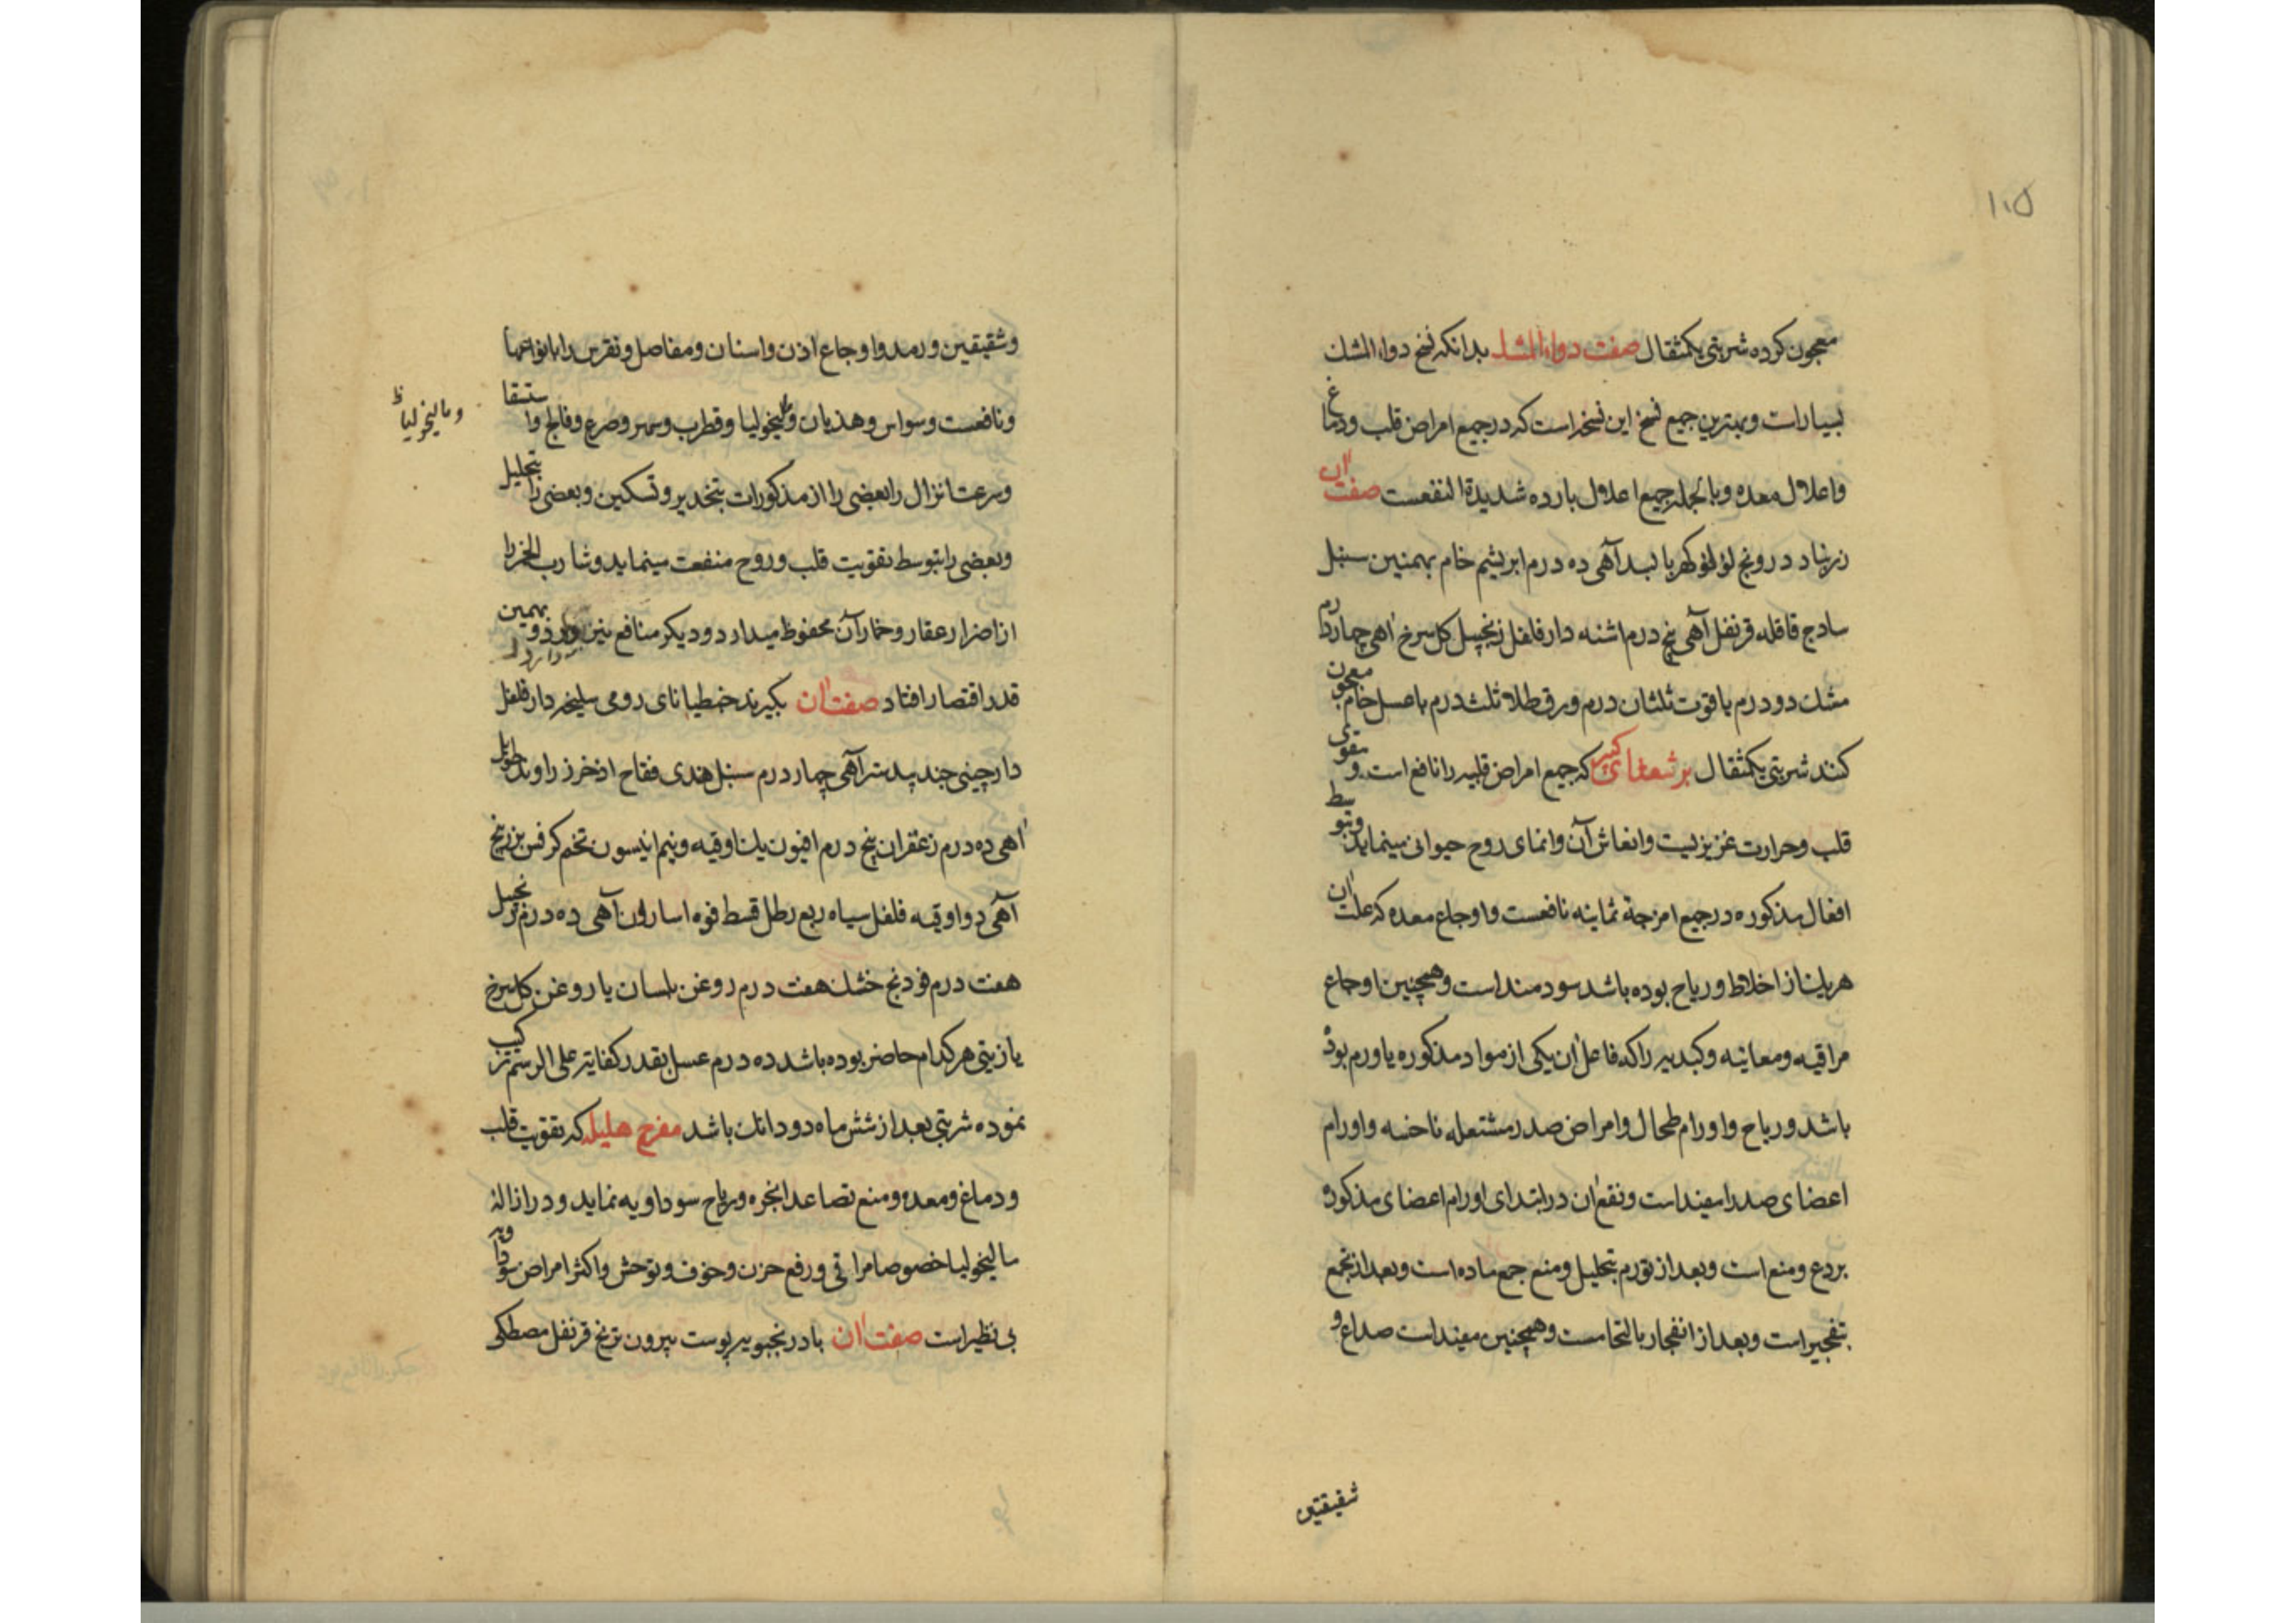 ۱۰۵
معجون کرده شربتی یکمثقال صفت دواء المشک بدانکه نسخ دواء المشک
بسیارات و بهترین جمیع نسخ این نسخه است که در جمیع امراض قلب و دماغ
و اعلاول معده و بالجمله جمیع اعلاول بارده شدیدة النفعست صفت ان
زرنباد درونج لؤلؤ کهربا بسد آهی ده درم ابریشم خام بهمنین سنبل
سادج قاقله قرنفل آهی پنج درم اشنه دار فلفل زنجبیل کل سرخ اهی چهار درم
مشک دو درم یاقوت ثلثان درم ورق طلا ثلث درم با عسل خام معجون
کنند شربتی یکمثقال برشعثای کبیر که جمیع امراض قلبیه را نافع است و مقوی
قلب و حرارت عزیزیست و انعاش آن و انمای روح حیوانی مینماید و بتوسط
افعال مذکوره در جمیع امزجهٔ ثمانیه نافعست و اوجاع معده که علت ان
هریک از اخلاط و ریاح بوده باشد سودمند است و همچنین اوجاع
مراقیه و معائیه و کبدیه را که فاعل ان یکی از مواد مذکوره یا ورم بوده
باشد و ریاح و اورام طحال و امراض صدر مشتعله ناخسه و اورام
اعضای صدر را مفید است و نفع ان در ابتدای اورام اعضای مذکوره
بردع و منع است و بعد از تورم بتحلیل و منع جمع ماده است و بعد از تجمع
بتفجیر است و بعد از انفجار بالتحامست و همچنین مفید است صداع و
شقیقتین
و شقیقین و رمد و اوجاع اذن و اسنان و مفاصل و نقرس را بانواعها
و نافعست وسواس و هذیان و مالیخولیا و قطرب و سهر و صرع و فالج و استسقا
و مالیخولیا ظ
و سرعت انزال را بعضی را از مذکورات بتخدیر و تسکین و بعضی را بتحلیل
و بعضی را بتوسط تقویت قلب و روح منفعت مینماید و شارب الخمر را
از اضرار عقار و خمار آن محفوظ میدارد و دیکر منافع نیز دارد و بهمین
قدر اقتصار افتاد صفت ان بکیرند خمطیانای رومی سلیخه دار فلفل
دارچینی جند بیدستر آهی چهار درم سنبل هندی فقاح اذخر زراوند طویل
اهی ده درم زعفران پنج درم افیون یک اوقیه و نیم انیسون تخم کرفس بزر بنج
آهی دو اوقیه فلفل سیاه ربع رطل قسط فوه اسارون آهی ده درم زنجبیل
هفت درم فودنج خشک هفت درم روغن بلسان یا روغن کل سرخ
یا زیتی هر کدام حاضر بوده باشد ده درم عسل بقدر کفایت علی الرسم ترکیب
نموده شربتی بعد از شش ماه دو دانک باشد مفرح هلیله که تقویت قلب
و دماغ و معده و منع تصاعد ابخره و ریاح سوداویه نماید و در ازاله
مالیخولیا خصوصا مراقی و رفع حزن و خوف و توحش و اکثر امراض سوداویه
بی نظیر است صفت ان بادرنجبویه پوست بیرون ترنج قرنفل مصطکی